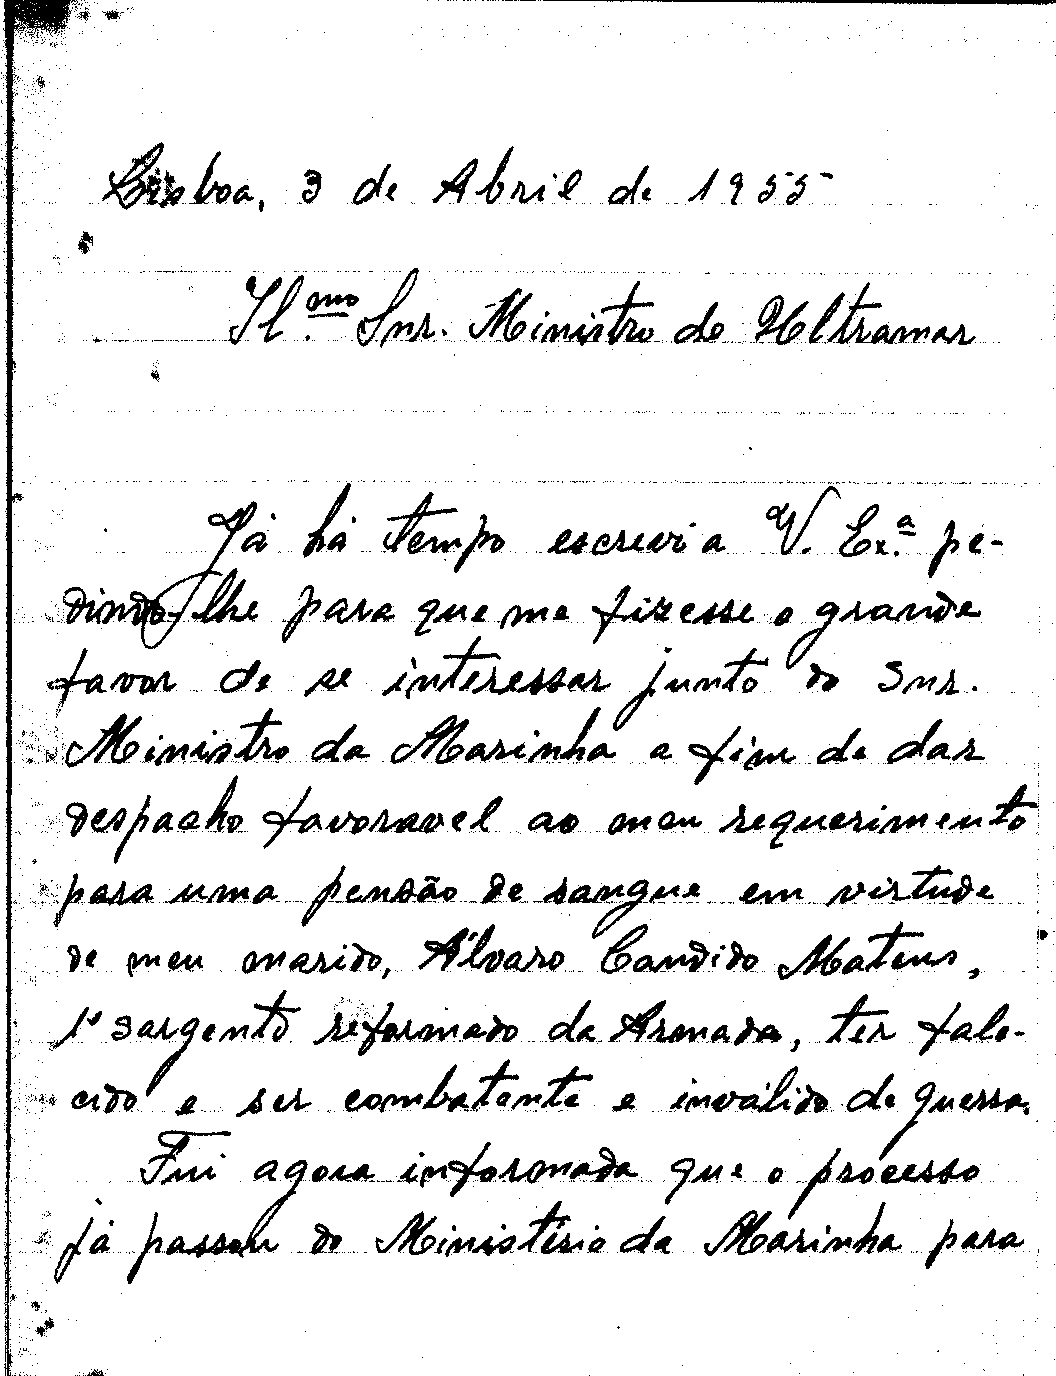 Lisboa, 3 de Abril de 1955
Il.mo Snr. Ministro do Ultramar
Já há tempo escrevi a V. Ex.ª pe-
dindo-lhe para que me fizesse o grande
favor de se interessar junto do Snr.
Ministro da Marinha a fim de dar
despacho favoravel ao meu requerimento
para uma pensão de sangue em virtude
de meu marido, Álvaro Candido Mateus,
1º sargento reformado da Armada, ter fale-
cido e ser combatente e inválido de guerra.
Fui agora informada que o processo
já passou do Ministério da Marinha para